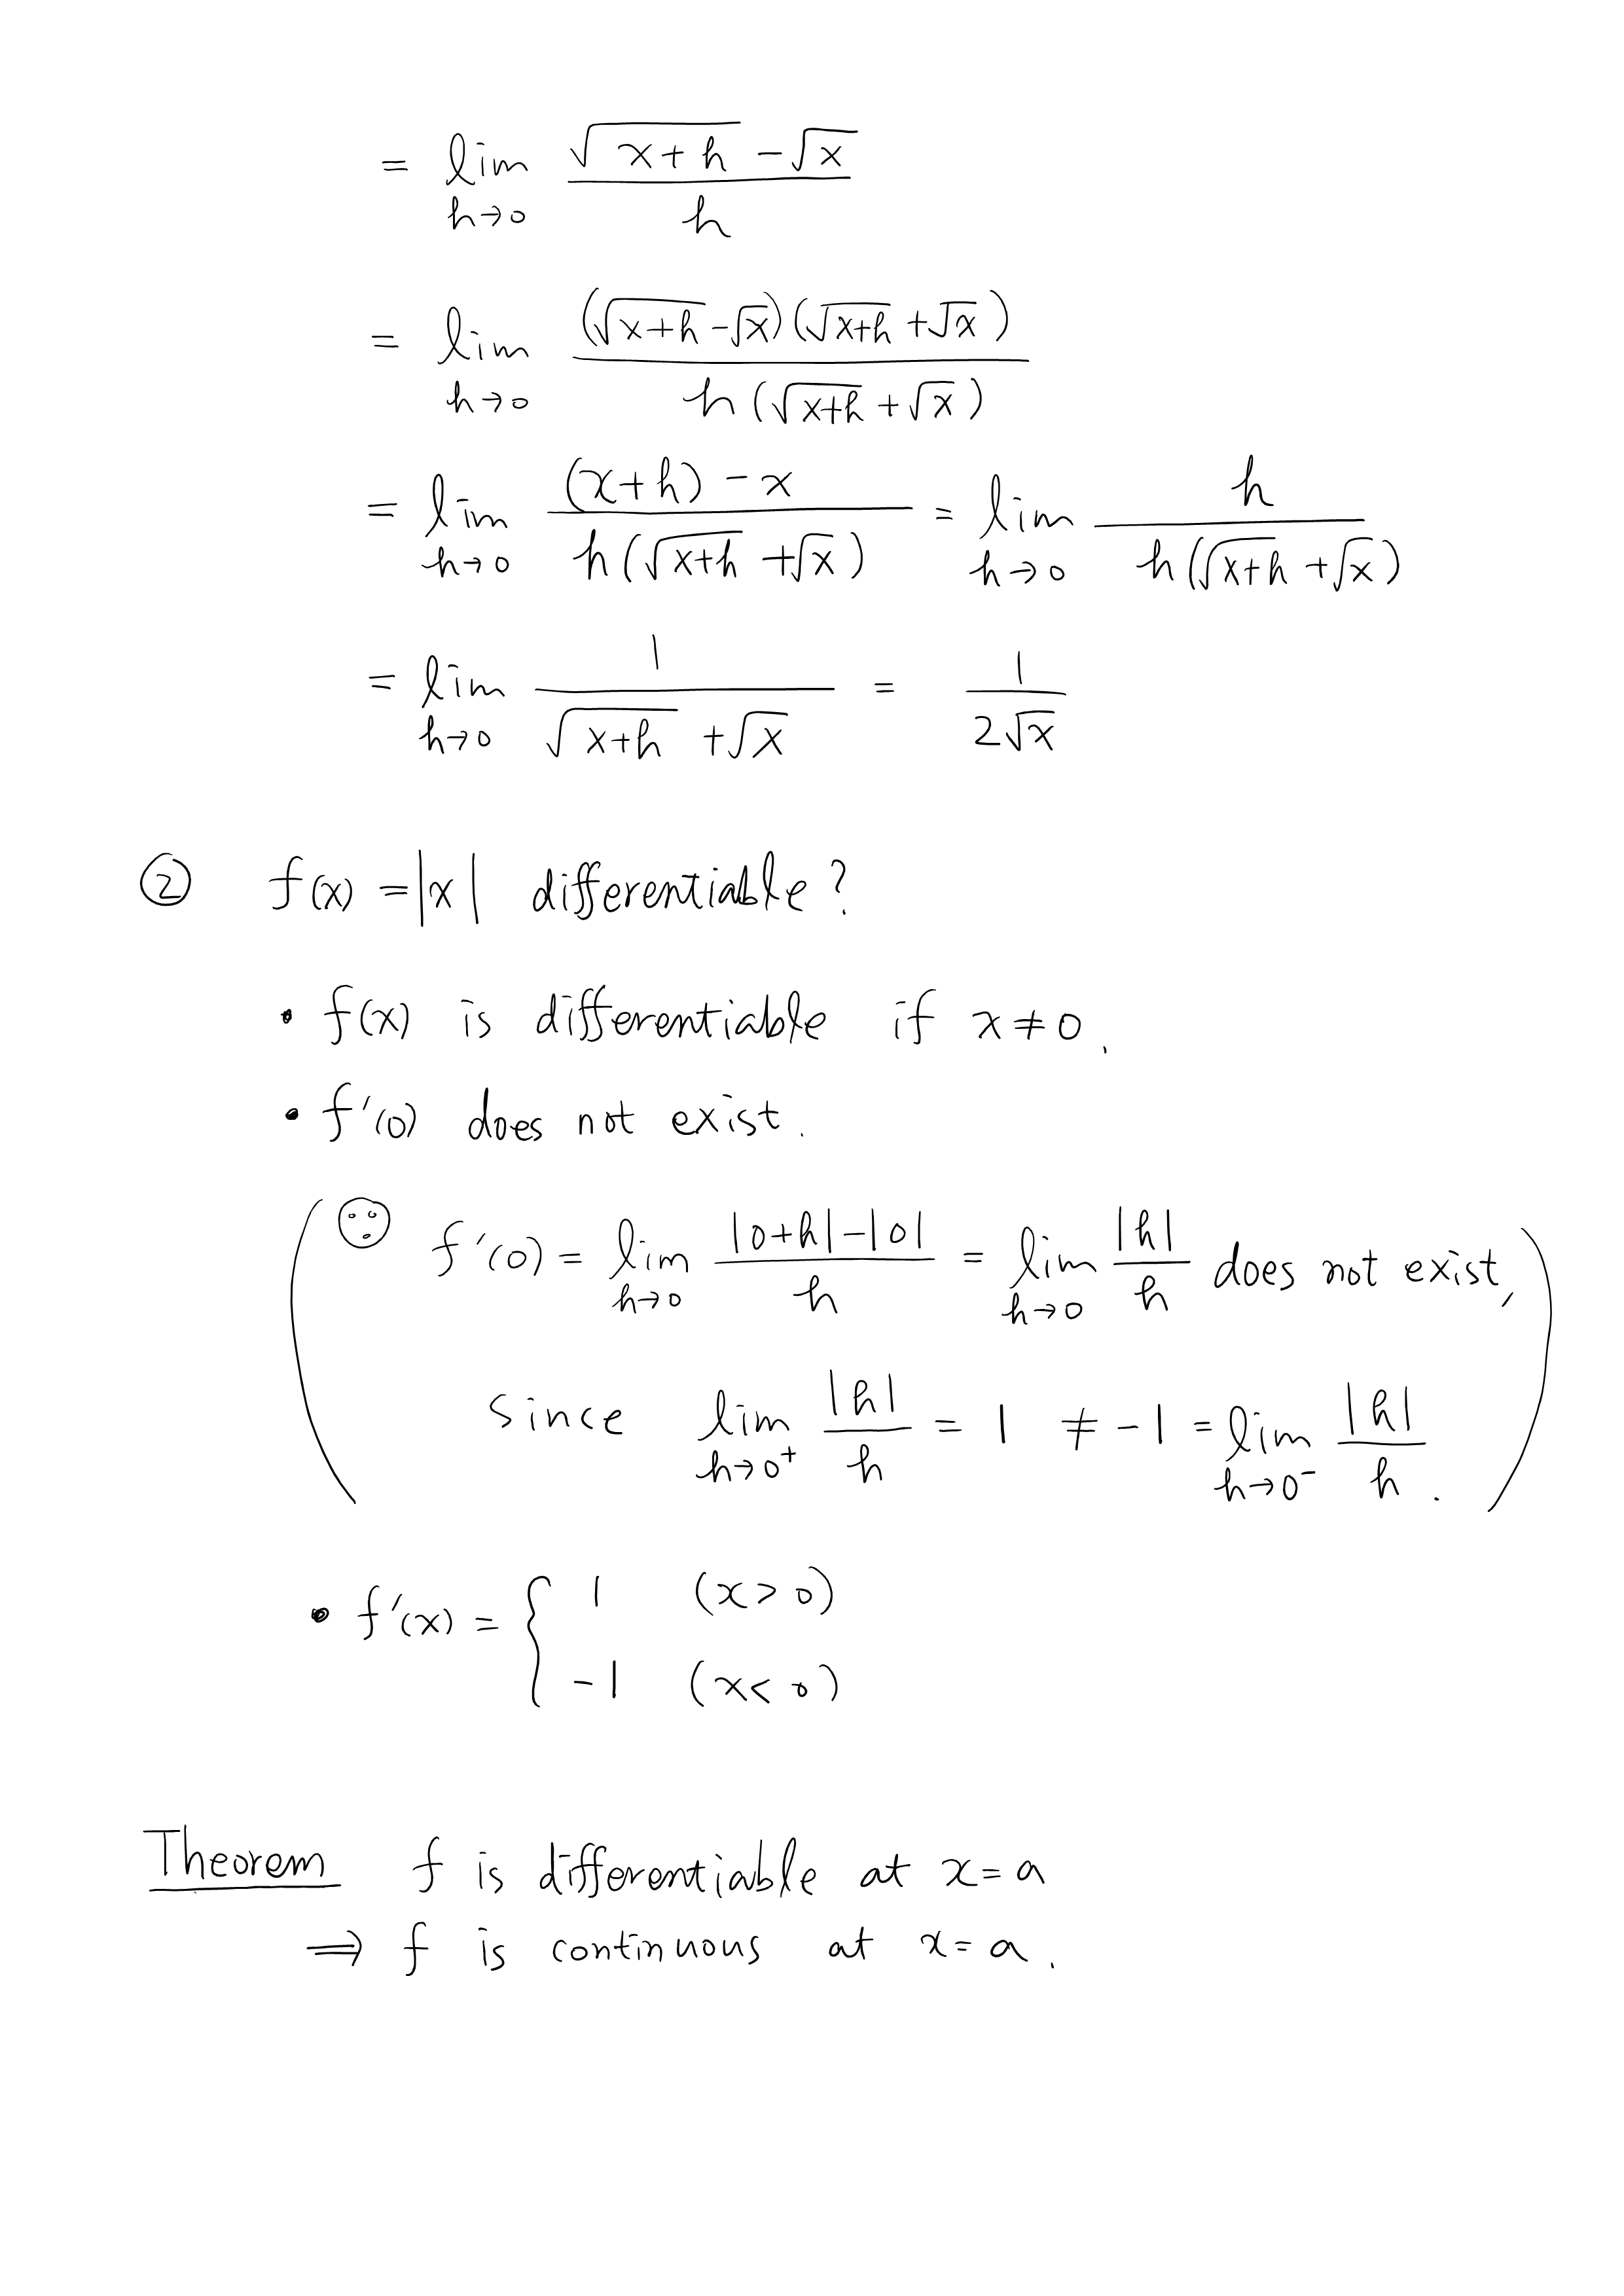 = lim_{h→0} (√(x+h) − √x) / h
= lim_{h→0} ((√(x+h) − √x)(√(x+h) + √x)) / (h(√(x+h) + √x))
= lim_{h→0} ((x+h) − x) / (h(√(x+h) + √x)) = lim_{h→0} h / (h(√(x+h) + √x))
= lim_{h→0} 1 / (√(x+h) + √x) = 1 / (2√x)
② f(x) = |x| differentiable?
• f(x) is differentiable if x ≠ 0.
• f'(0) does not exist.
( f'(0) = lim_{h→0} (|0+h| − |0|) / h = lim_{h→0} |h| / h does not exist,
since lim_{h→0⁺} |h| / h = 1 ≠ −1 = lim_{h→0⁻} |h| / h. )
• f'(x) = { 1 (x > 0)
−1 (x < 0)
Theorem f is differentiable at x = a
⟹ f is continuous at x = a.